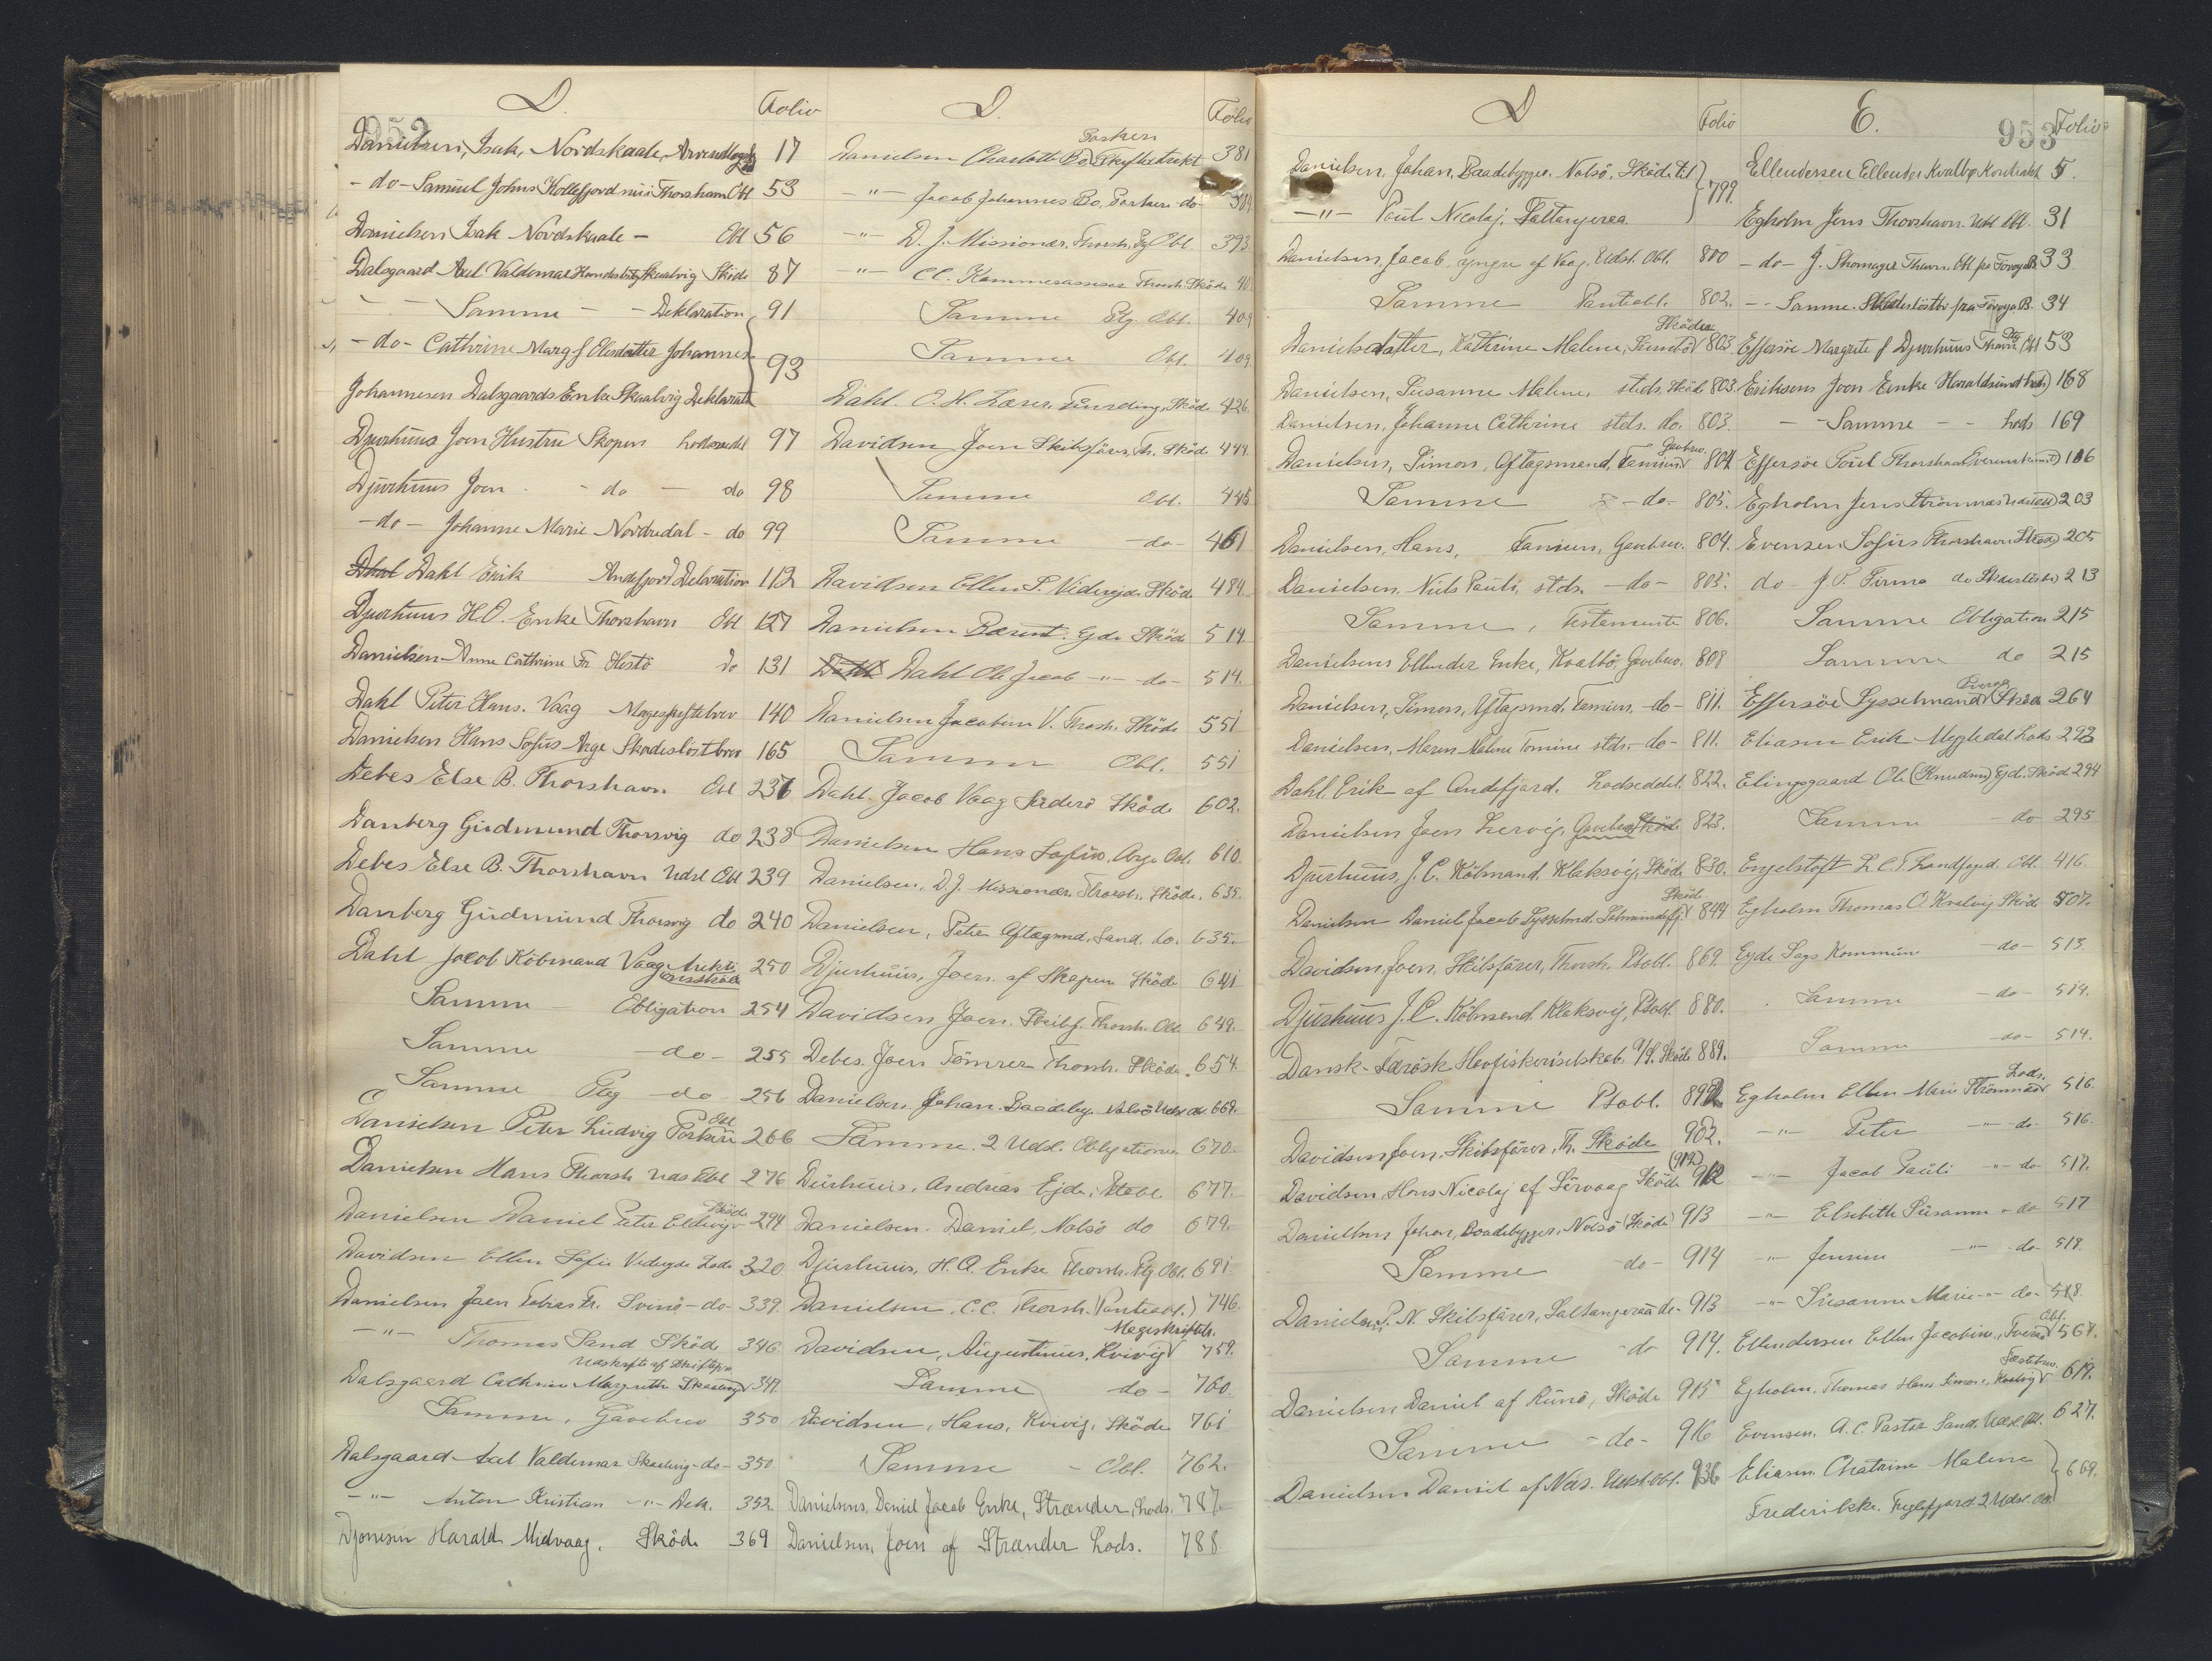 952
D. Folio
Danielsen, Isak, Nordskaale, 17
- do - Samuel Johns Kollefjord nu i Thorshavn Obl 53
Danielsen Isak Nordskaale - Obl 56
Dalsgaard Axel Valdemar Skaalvig Skøde 87
- - Samme - - Deklaration 91
- do - Cathrine Margf Olesdatter Johannes
Johannesen Dalsgaards Enke Skaalvig Deklarat 93
Djurhuus Joen Hustru Skopen Lodseddel 97
Djurhuus Joen - do - do 98
- do - Johanne Marie Nordredal - do 99
Dahl Erik Andefjord Deklaration 112
Djurhuus H.O. Enke Thorshavn Obl 127
Danielsen Anne Cathrine Fr Hestö do 131
Dahl Peter Hans. Vaag Mageskiftebrev 140
Danielsen Hans Sofus Arge Skadesløstbrev 165
Debes Else B. Thorshavn Obl 237
Danberg Gudmund Thorsvig do 238
Debes Else B. Thorshavn Udsl Obl 239
Danberg Gudmund Thorsvig do 240
Dahl Jacob Købmand Vaag Auktionsskøde 250
Samme - Obligation 254
Samme - do - 255
Samme Ptg - do - 256
Danielsen Peter Ludvig Porkeri Obl 266
Danielsen Hans Thorsh Udsl Obl 276
Danielsen Daniel Peter Eldevig Skøde 294
Davidsen Ellen Sofie Videreide Lods 320
Danielsen Joen Tobias Fr. Svinö - do - 339.
- " - Thomas Sand Skøde 346
Dalsgaard Cathrine Margrethe Skaalvig Udskrift af Skiftepr. 349
Samme, Gavebrev 350
Dalsgaard Axel Valdemar Skaalvig - do - 350
- " - Anton Kristian - " - Dek. 352.
Djonesen Harald Midvaag. Skøde 369
D. Folio
Danielsen Charlotte Bo, Porkeri Skifteextrakt 381
- " - Jacob Johannes Bo, Porkeri - do -
- " - D. J. Missionær, Thorsh. Ptg Obl. 393
- " - CC. Kammerassessor Thorsh. Skøde
Samme Ptg. Obl. 409
Samme Obl. 409
Dahl. O. H. Lærer, Funding, Skøde 426.
Davidsen Joen Skibsfører, Th. Skøde 444.
Samme Obl. 445
Samme - do - 461
Davidsen Ellen S. Videreide Skøde 484
Danielsen Barent. Ejde Skøde 514
Dahl Ole Jacob - " - do - 514.
Danielsen Jacobine V. Thorsh. Skøde 551
Samme Obl. 551
Dahl. Jacob Vaag Suderö Skøde 602.
Danielsen Hans Sofus, Arge Obl. 610
Danielsen, D. J. Missionær, Thorsh. Skøde. 635.
Danielsen, Peter Aftægtsmd. Sand. do. 635.
Djurhuus, Joen. af Skopun Skøde 641
Davidsen Joen. Skibsf. Thorsh. Obl. 649.
Debes Joen Tömrer Thorsh. Skøde. 654.
Danielsen, Johan. Baadebyg. Nolsö Udsl do. 669.
Samme. 2 Udsl. Obligationer 670.
Djurhuus, Andreas Ejde, Ptobl. 677.
Danielsen. Daniel, Nolsö do 679.
Djurhuus, H. O. Enke Thorsh. Ptg Obl. 691
Danielsen, C.C. Thorsh. (Panteobl.) 746.
Davidsen, Augustinus, Kvivig Mageskiftebr. 759.
Samme do - 760
Davidsen, Hans, Kvivig, Skøde 761
Samme - Obl. 762.
Danielsens, Daniel Jacob Enke, Strænder, Lods. 787.
Danielsen, Joen af Strænder Lods. 788
953
D Folio
Danielsen, Johan, Baadebygger. Nolsö, Skøde til
- " - Poul Nicolaj, Saltangeraa. 799.
Danielsen, Jacob yngre af Vaag, Udsl. Obl. 800
Samme Panteobl. 802.
Danielsdatter, Kathrine Malene, Skøde 803
Danielsen, Susanne Malene, stds. Skøde 803.
Danielsen, Johanne Cathrine stds. do. 803.
Danielsen, Simon, Aftægsmand, Famien Gavebrev. 804
Samme - do - 805.
Danielsen, Hans, Famien, Gavebrev. 804.
Danielsen, Niels Pauli, stds. - do - 805.
Samme, Testamente 806.
Danielsens Ellender Enke, Kvalbö, Gavebrev. 808
Danielsen, Simon, Aftægsmd. Famien. - do - 811.
Danielsen, Maren Malene Tomine stds. - do - 811.
Dahl, Erik af Andefjord. Lodseddel. 822.
Danielsen Joen Lervig. Gavebrev Skøde 823.
Djurhuus, J. C. Købmand. Klaksvig, Skøde 830.
Danielsen Daniel Jacob Sysselmd. Selmundefj. Skøde 844
Davidsen, Joen, Skibsfører, Thorsh. Ptobl. 869.
Djurhuus J. C. Købmand. Klaksvig, Ptobl. 880.
Dansk-Færösk Havfiskeriselskab, A/S. Skøde 889.
Samme Ptobl.
Davidsen Joen. Skibsfører, Th. Skøde 902.
Davidsen, Hans Nicolaj af Sörvaag Skøde (912) 912
Danielsen Johan, Baadebygger, Nolsö (Skøde) 913
Samme - do - 914
Danielsen P. N. Skibsfører, Saltangeraa do - 913
Samme - do 914.
Danielsen Daniel af Runö, Skøde 915
Samme - do - 916
Danielsen Daniel af Næs. Udsl. Obl. 936
E. Folio
Ellendersen Ellender Kvalbø Kontrakt 5.
Egholm Jens Thorshavn Udsl Obl. 31
- do - J. Skomager Thavn. Obl fra Føroya B. 33
- - Samme. Skadesløstbr fra Føroya B. 34
Effersøe Margrete f Djurhuus Thavn Ptg Obl 53
Eriksens Joen Enke Haraldsund Lods) 168
- - Samme - - Lods 169
Effersöe Poul Thorshavn Overenskomst) 186
Egholm Jens Strömnæs 203
Evensen Sofus Thorshavn Skøde) 205
do - J. P. Firma do Skadeslösbr 213
Samme Obligation 215
Samme do 215
Effersöe Sysselmand Skøde 264
Eliasen Erik Mygledal Lods 293
Elingsgaard Ole (Knudsen) Ejd. Skød 294
Samme - do 295
Engelstoft L. C. T. Landfoged. Obl. 416.
Egholm Thomas O. Kvalvig Skøde 507.
Ejde Sogs Kommune - do - 513.
Samme - do - 514.
Samme - do - 514.
Egholm Ellen Marie Strömnæs Lods. 516.
- " - Peter - " - do - 516.
- " - Jacob Pauli - " - do - 517.
- " - Elsebeth Susanne - do - 517
- " - Jensine - " - do - 518.
- " - Susanne Marie - " - do - 518.
Ellendersen Ellen Jacobine, Tveraa Obl. 567.
Egholm. Thomas Hans Simon, Kvalvig Fæstebrev. 619.
Evensen. A. C. Pastor Sand. Udsl. Obl. 627.
Eliasen. Chatrine Malene
Frederikke. Fuglefjord. 2 Udsl. Obl. 669.